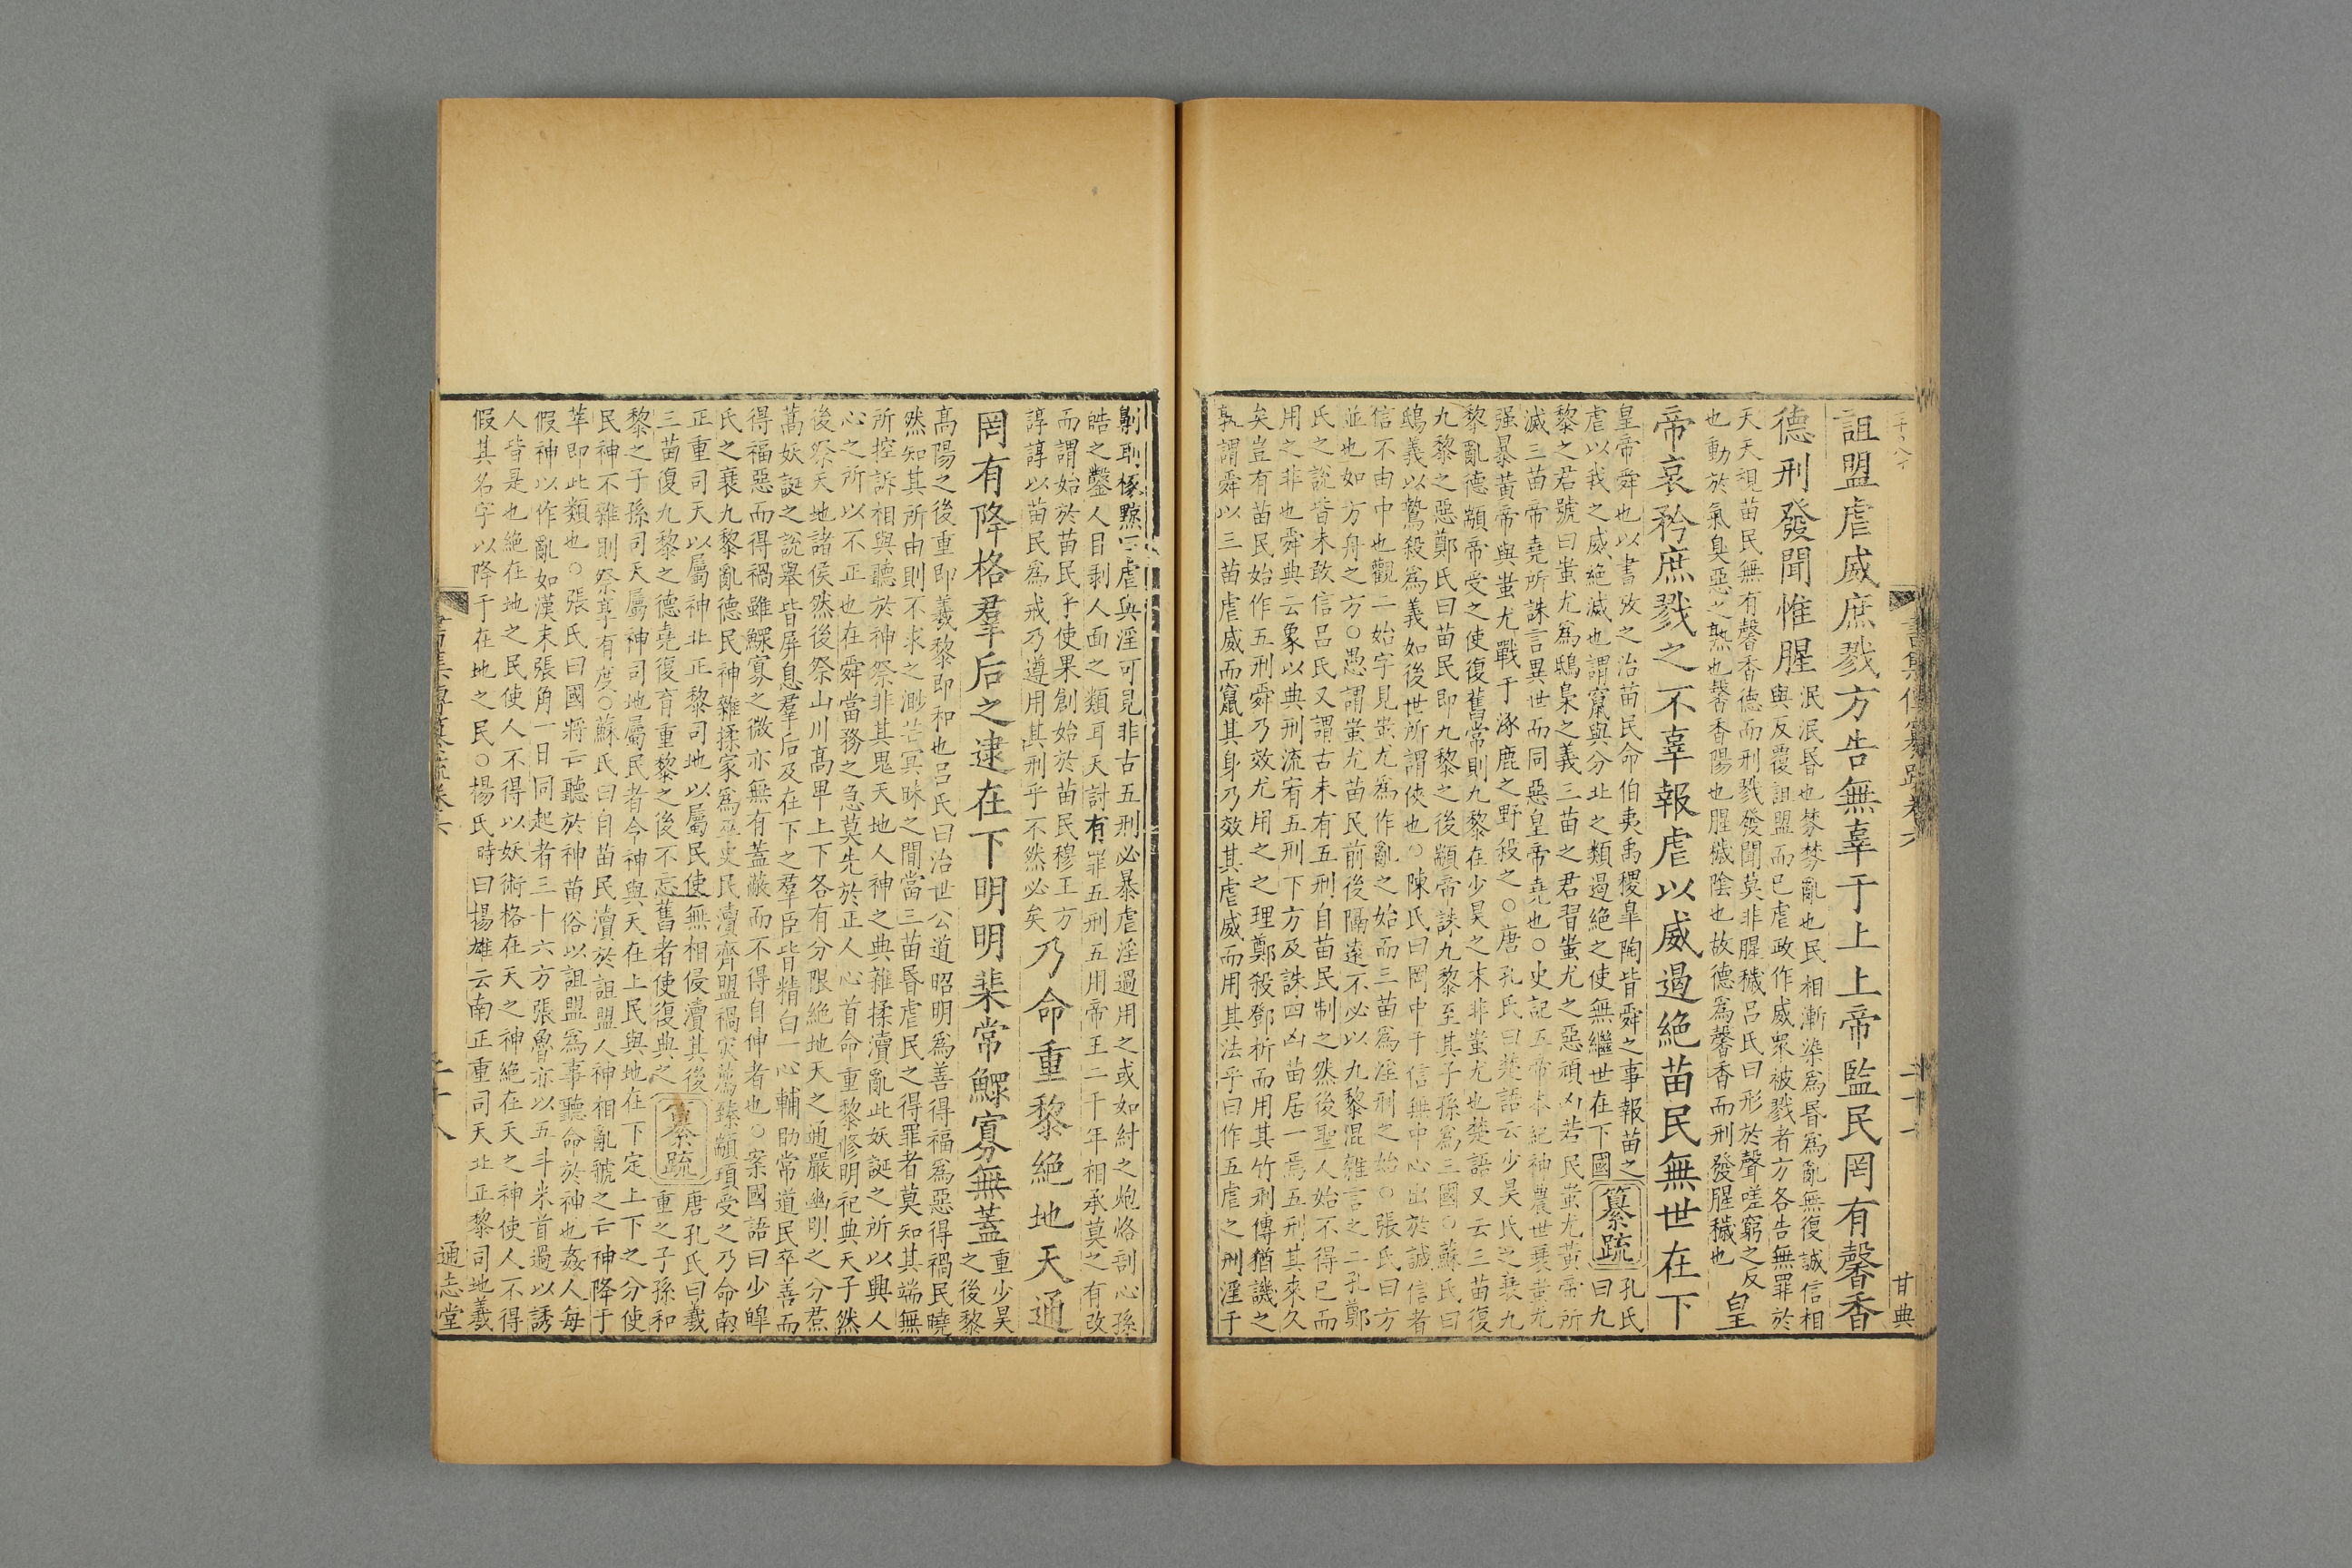 詛盟虐威庶戮方告無辜于上上帝監民罔有馨香
德刑發聞惟腥
泯泯昬也棼棼亂也民相漸染爲昬爲亂無復誠信相
與反覆詛盟而已虐政作威衆被戮者方各告無罪於
天天視苗民無有馨香德而刑戮發聞莫非腥穢呂氏曰形於聲嗟窮之反
也動於氣臭惡之熟也馨香陽也腥穢陰也故德爲馨香而刑發腥穢也
皇
帝哀矜庶戮之不辜報虐以威遏絶苗民無世在下
皇帝舜也以書攷之治苗民命伯夷禹稷臯陶皆舜之事報苗之
虐以我之威絶滅也謂竄與分北之類遏絶之使無繼世在下國
纂疏
孔氏
曰九
黎之君號曰蚩尤爲鴟梟之義三苗之君習蚩尤之惡頑凶若民蚩尤黃帝所
滅三苗帝堯所誅言異世而同惡皇帝堯也○史記五帝本紀神農世衰蚩尤
强暴黃帝與蚩尤戰于涿鹿之野殺之○唐孔氏曰楚語云少昊氏之衰九
黎亂德顓帝受之使復舊常則九黎在少昊之末非蚩尤也楚語又云三苗復
九黎之惡鄭氏曰苗民即九黎之後顓帝誅九黎至其子孫爲三國○蘇氏曰
鴟義以鷙殺爲義如後世所謂俠也○陳氏曰罔中于信無中心出於誠信者
信不由中也觀二始字見蚩尤爲作亂之始而三苗爲淫刑之始○張氏曰方
並也如方舟之方○愚謂蚩尤苗民前後隔遠不必以九黎混雜言之二孔鄭
氏之說皆未敢信呂氏又謂古未有五刑自苗民制之然後聖人始不得已而
用之非也舜典云象以典刑流宥五刑下方及誅四凶苗居一焉五刑其來久
矣豈有苗民始作五刑舜乃效尤用之之理鄭殺鄧析而用其竹刑傳猶譏之
孰謂舜以三苗虐威而竄其身乃效其虐威而用其法乎曰作五虐之刑淫于
劓刵椓黥曰虐與淫可見非古五刑必暴虐淫過用之或如紂之炮烙剖心孫
皓之鑿人目剥人面之類耳天討有罪五刑五用帝王二千年相承莫之有改
而謂始於苗民乎使果創始於苗民穆王方
諄諄以苗民爲戒乃遵用其刑乎不然必矣
乃命重黎絶地天通
罔有降格羣后之逮在下明明棐常鰥寡無蓋
重少昊
之後黎
高陽之後重即羲黎即和也呂氏曰治世公道昭明爲善得福爲惡得禍民曉
然知其所由則不求之渺茫冥昧之間當三苗昬虐民之得罪者莫知其端無
所控訴相與聽於神祭非其鬼天地人神之典雜揉瀆亂此妖誕之所以興人
心之所以不正也在舜當務之急莫先於正人心首命重黎修明祀典天子然
後祭天地諸侯然後祭山川高卑上下各有分限絶地天之通嚴幽明之分焄
蒿妖誕之說舉皆屏息羣后及在下之羣臣皆精白一心輔助常道民卒善而
得福惡而得禍雖鰥寡之微亦無有蓋蔽而不得自伸者也○案國語曰少皥
氏之衰九黎亂德民神雜揉家爲巫史民瀆齊盟禍災薦臻顓頊受之乃命南
正重司天以屬神北正黎司地以屬民使無相侵瀆其後
三苗復九黎之德堯復育重黎之後不忘舊者使復典之
纂疏
唐孔氏曰羲
重之子孫和
黎之子孫司天屬神司地屬民者令神與天在上民與地在下定上下之分使
民神不雜則祭享有度○蘇氏曰自苗民瀆於詛盟人神相亂虢之亡神降于
莘即此類也○張氏曰國將亡聽於神苗俗以詛盟爲事聽命於神也姦人每
假神以作亂如漢末張角一日同起者三十六方張魯亦以五斗米首過以誘
人皆是也絶在地之民使人不得以妖術格在天之神絶在天之神使人不得
假其名字以降于在地之民○楊氏時曰楊雄云南正重司天北正黎司地羲
書集傳纂疏卷六
甘典
書集傳纂疏卷六
二十八
通志堂